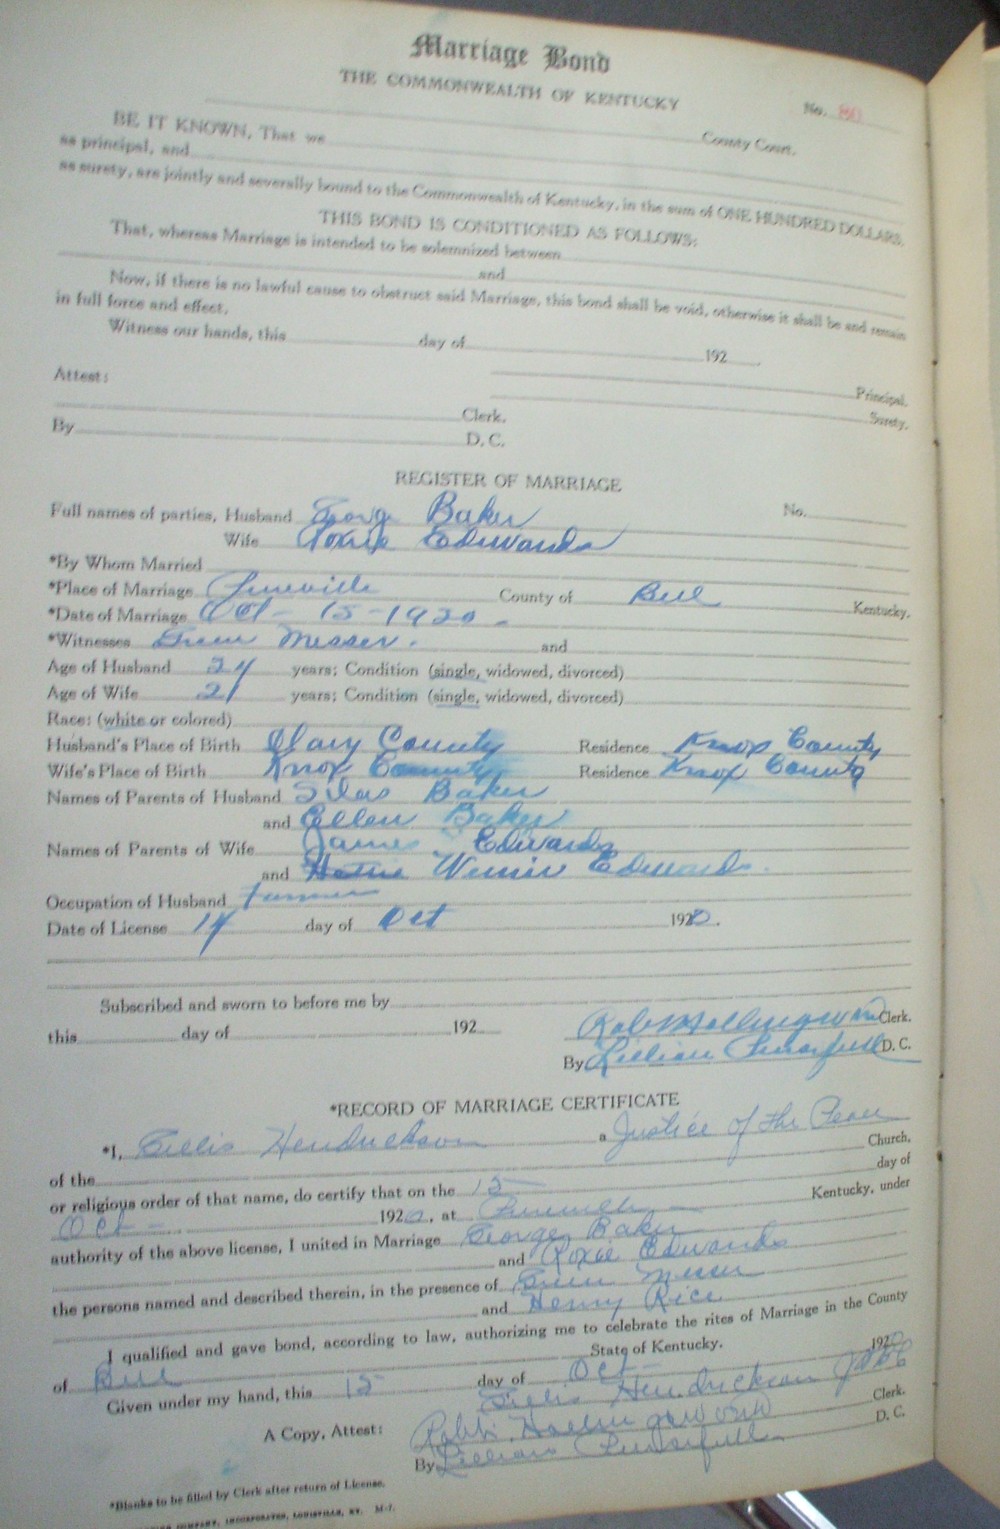 Marriage Bond
THE COMMONWEALTH OF KENTUCKY
No. 80
County Court.
BE IT KNOWN, That we
as principal, and
as surety, are jointly and severally bound to the Commonwealth of Kentucky, in the sum of ONE HUNDRED DOLLARS.
THIS BOND IS CONDITIONED AS FOLLOWS:
That, whereas Marriage is intended to be solemnized between
and
Now, if there is no lawful cause to obstruct said Marriage, this bond shall be void, otherwise it shall be and remain
in full force and effect.
Witness our hands, this day of 192
Principal.
Attest:
Surety.
Clerk.
By D. C.
REGISTER OF MARRIAGE
Full names of parties, Husband George Baker No.
Wife Roxie Edwards
*By Whom Married
*Place of Marriage Pineville County of Bell Kentucky.
*Date of Marriage Oct - 15 - 1920 -
*Witnesses Messer. and
Age of Husband 24 years; Condition (single, widowed, divorced)
Age of Wife 21 years; Condition (single, widowed, divorced)
Race: (white or colored)
Husband's Place of Birth Clay County Residence Knox County
Wife's Place of Birth Knox County Residence Knox County
Names of Parents of Husband Silas Baker
and Ellen Baker
Names of Parents of Wife James Edwards
and Edwards.
Occupation of Husband Farmer
Date of License 14 day of Oct 1920.
Subscribed and sworn to before me by
this day of 192
Rob Hollingsworth Clerk.
By Lillian D. C.
*RECORD OF MARRIAGE CERTIFICATE
*I, Gillis Hendrickson a Justice of the Peace
of the Church,
or religious order of that name, do certify that on the 15 day of
Oct - 1920, at Pineville Kentucky, under
authority of the above license, I united in Marriage George Baker
and Roxie Edwards
the persons named and described therein, in the presence of Messer
and Henry Rice
I qualified and gave bond, according to law, authorizing me to celebrate the rites of Marriage in the County
of Bell State of Kentucky.
Given under my hand, this 15 day of Oct - 1920
Gillis Hendrickson
A Copy, Attest: Hollingsworth Clerk.
By Lillian D. C.
*Blanks to be filled by Clerk after return of License.
COMPANY, INCORPORATED, LOUISVILLE, KY. M-7.